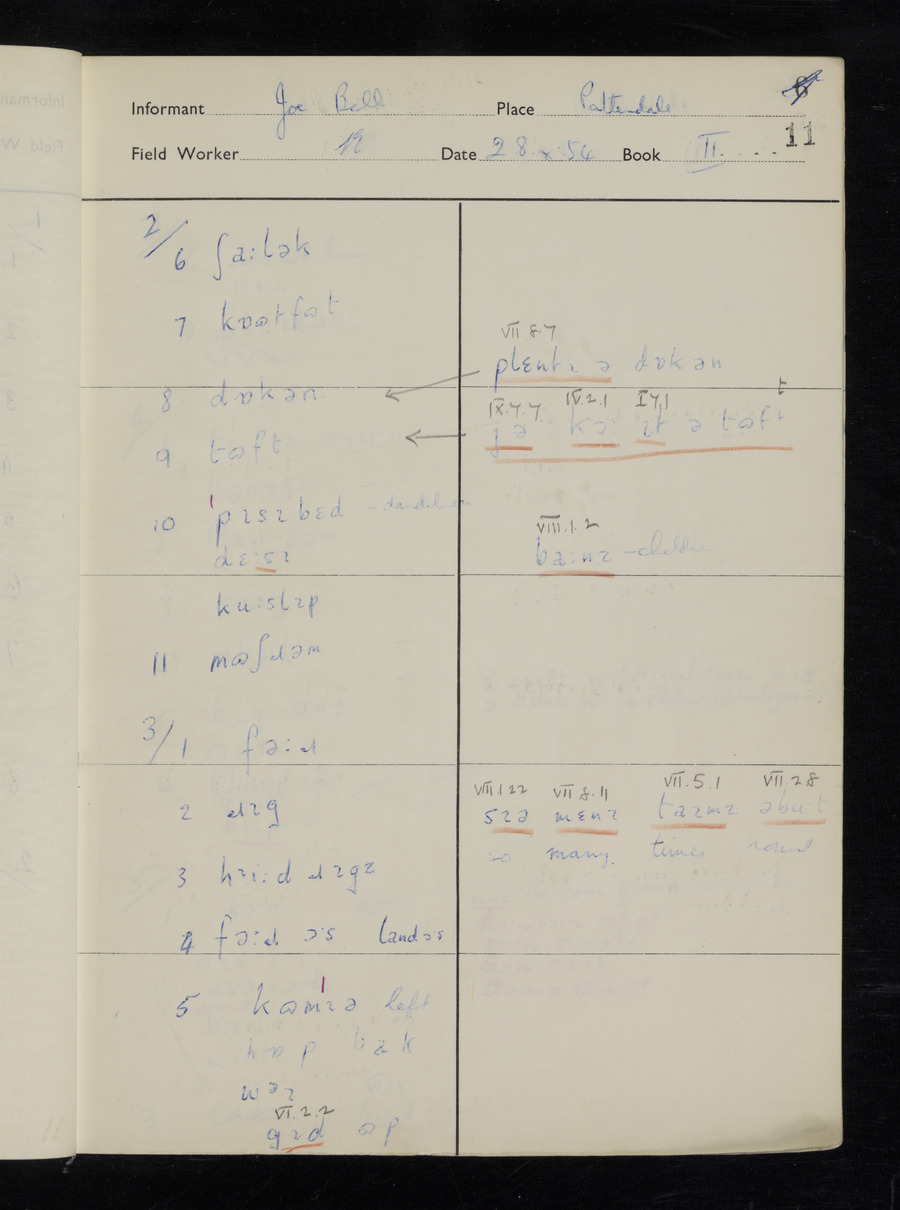 Informant Joe Bell Place Patterdale
11
Field Worker Date 28 x 54 Book II
2/6 ʃaːlək
7 kwatfət
VII 8.7
plentɪ ə dɒkən
8 dɒkən
IX.4.4 IV.2.1 I 7.1
t
ɪt ə tɷft
9 tɷft
10 'pɪsɪbɛd - dandelion
VIII.1.2
deːsɪ
baːnz - children
kuːslɪp
11 mɷʃɹəm
3/1 fəːɹ
VIII 1 22 VII 8.11 VII.5.1 VII.2.8
2 ɹɪg
sɪə mɛnɪ taɪmz əbuːt
so many times round
3 hɪːd ɹɪgz
4 fəːɹ əːs landəːs
5 kɷm'ɪə left
hɷp bak
wəɪ
VI.2.2
gɪd ɷp